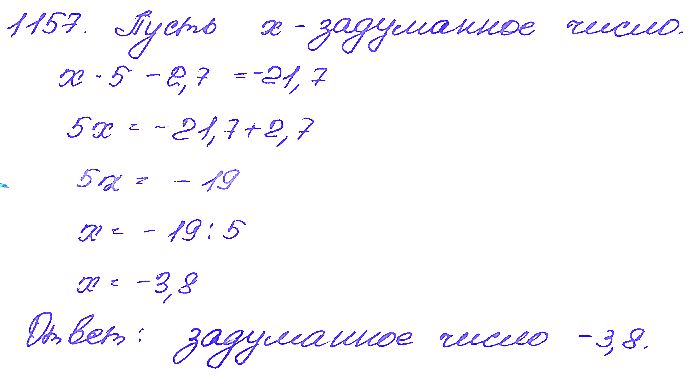 1157. Пусть x - задуманное число.
x · 5 - 2,7 = -21,7
5x = -21,7 + 2,7
5x = - 19
x = - 19 : 5
x = -3,8
Ответ: задуманное число -3,8.